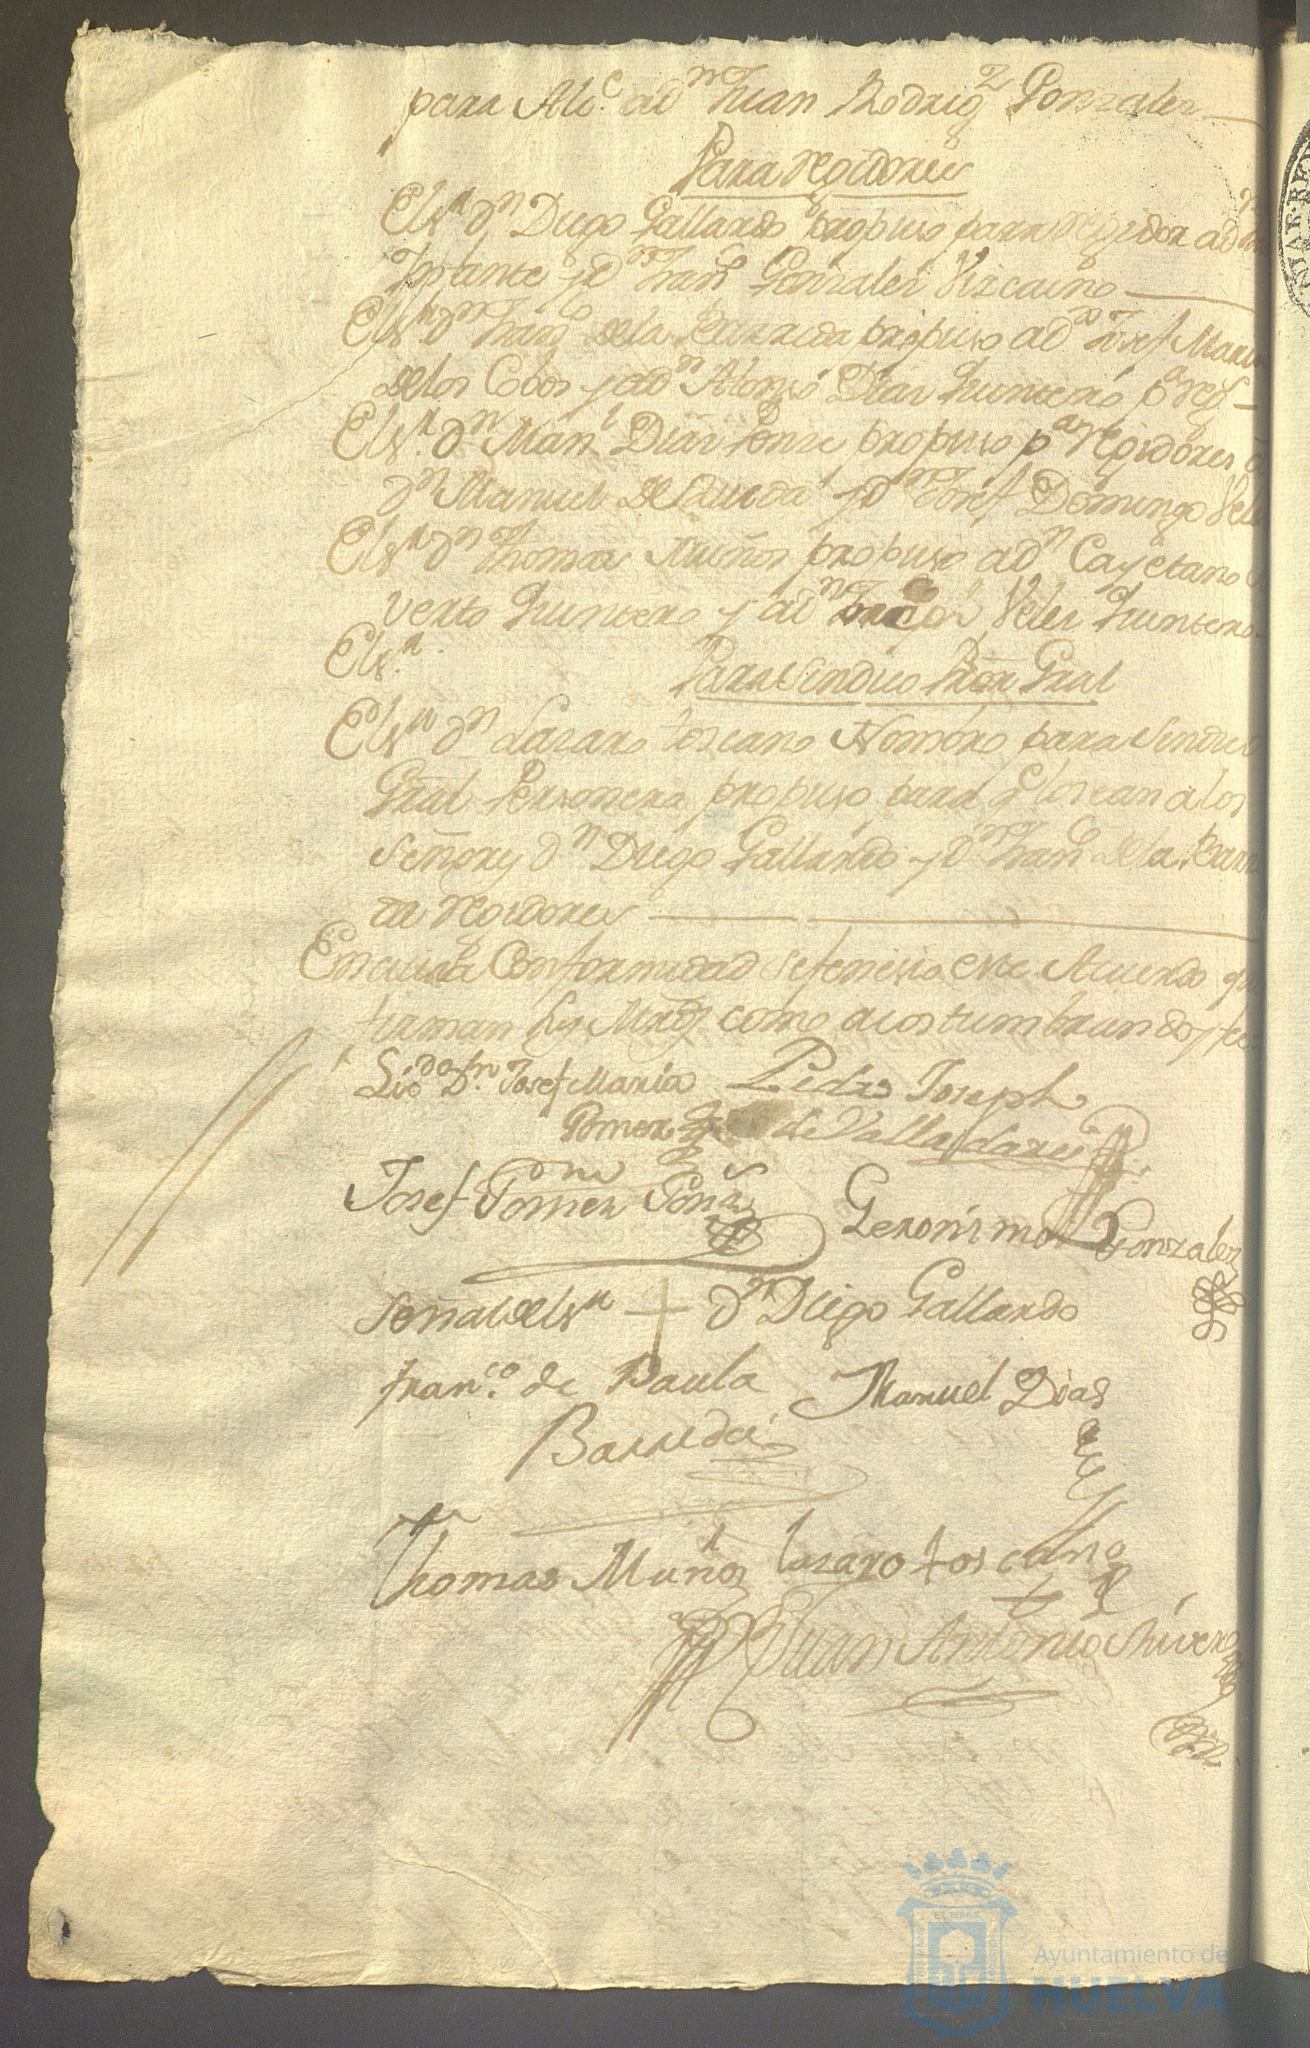 para Alc.e a dn Juan Rodrigz Gonzales
Para regidores
El sr dn Diego Gallardo propuso para regidor a dn
Infante y dn Franco Gonzales Viscaino
El sr dn Franco de la Barreda propuso a dn Josef Maria
de los Cobos y a dn Alonso Dias Quintero pa reg
El sr dn Manl Dias Ponse propuso pa regidores a
dn Manuel de y dn Josef Domingo Vele
El sr dn Thomas Muños propuso a dn Cayetano
verto Quintero y a dn Veles Quintero
El sr
Para Sindico Pror Gral
El sr dn Lazaro toscano Nombro para Sindico
Gral Personero propuso para q lo sean a los
Señores dn Diego Gallardo y dn Franco de la Barre
da regidores
En cuia Conformidad se fenesio este Acuerdo que
firman sus Mrds como acostumbran doy fe
Licdo Dn Josef Maria Pedro Joseph
Gomez de Valladares
Josef Gomez Geronimo Gonzalez
Señal del sr + dn Diego Gallardo
Franco de Paula Manuel Dias
Barreda
Thomas Muñoz lazaro toscano
Juan Antonio
Ayuntamiento de
HUELVA